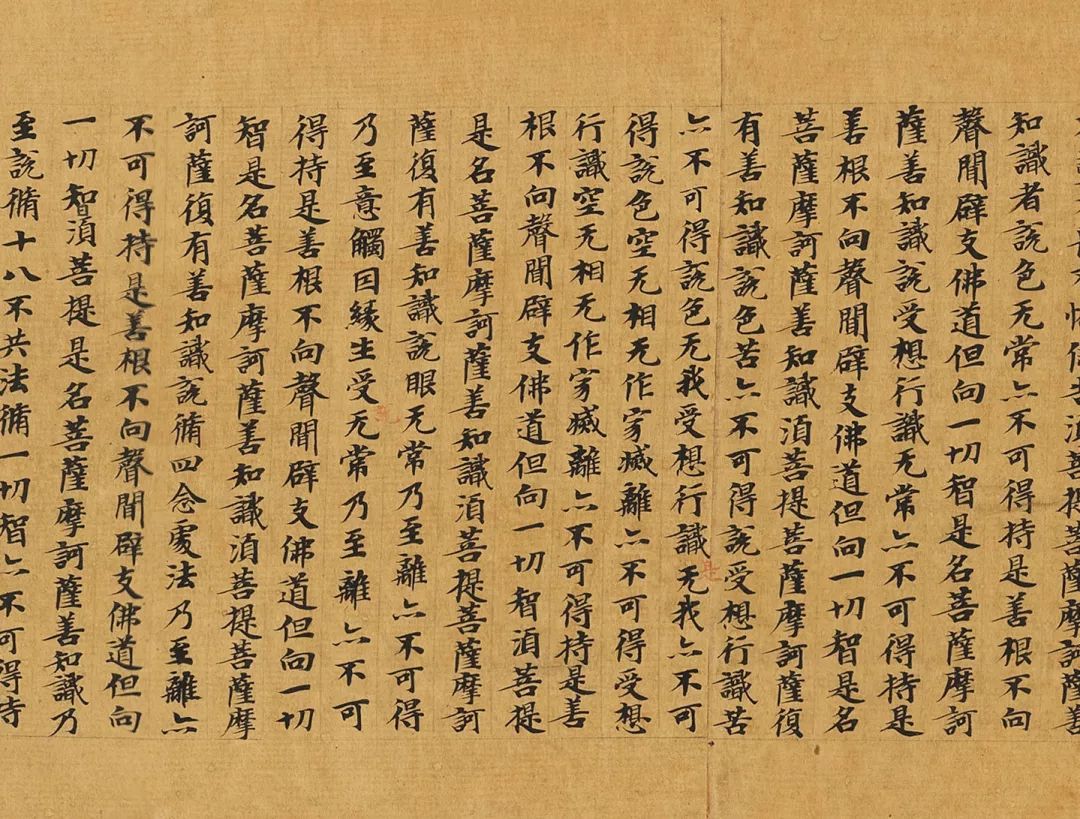 須菩提菩薩摩訶薩善
知識者說色无常亦不可得持是善根不向
聲聞辟支佛道但向一切智是名菩薩摩訶
薩善知識說受想行識无常亦不可得持是
善根不向聲聞辟支佛道但向一切智是名
菩薩摩訶薩善知識須菩提菩薩摩訶薩復
有善知識說色苦亦不可得說受想行識苦
亦不可得說色无我受想行識无我亦不可
得說色空无相无作寂滅離亦不可得受想
行識空无相无作寂滅離亦不可得持是善
根不向聲聞辟支佛道但向一切智須菩提
是名菩薩摩訶薩善知識須菩提菩薩摩訶
薩復有善知識說眼无常乃至離亦不可得
乃至意觸因緣生受无常乃至離亦不可
得持是善根不向聲聞辟支佛道但向一切
智是名菩薩摩訶薩善知識須菩提菩薩摩
訶薩復有善知識說脩四念處法乃至離亦
不可得持是善根不向聲聞辟支佛道但向
一切智須菩提是名菩薩摩訶薩善知識乃
至說脩十八不共法脩一切智亦不可得持